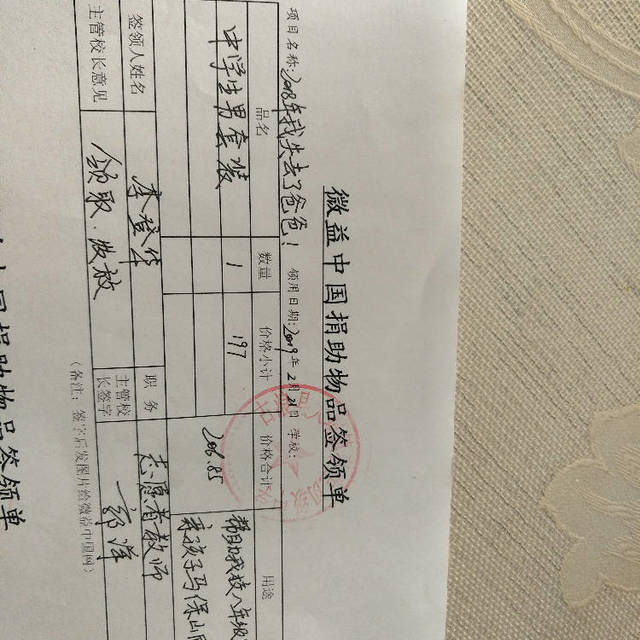 微益中国捐助物品签领单
项目名称:2018年我失去了爸爸! 领用日期:2019年2月21日 学校:
品名 数量 价格小计 价格合计 用途
中学生男套装 1 197 206.85 帮助我校八年级
孩子马保山
签领人姓名 李登华 职务 志愿者教师
主管校长意见 领取.发放 主管校长签字
(备注:签字后发图片给微益中国网)
国捐助物品签领单